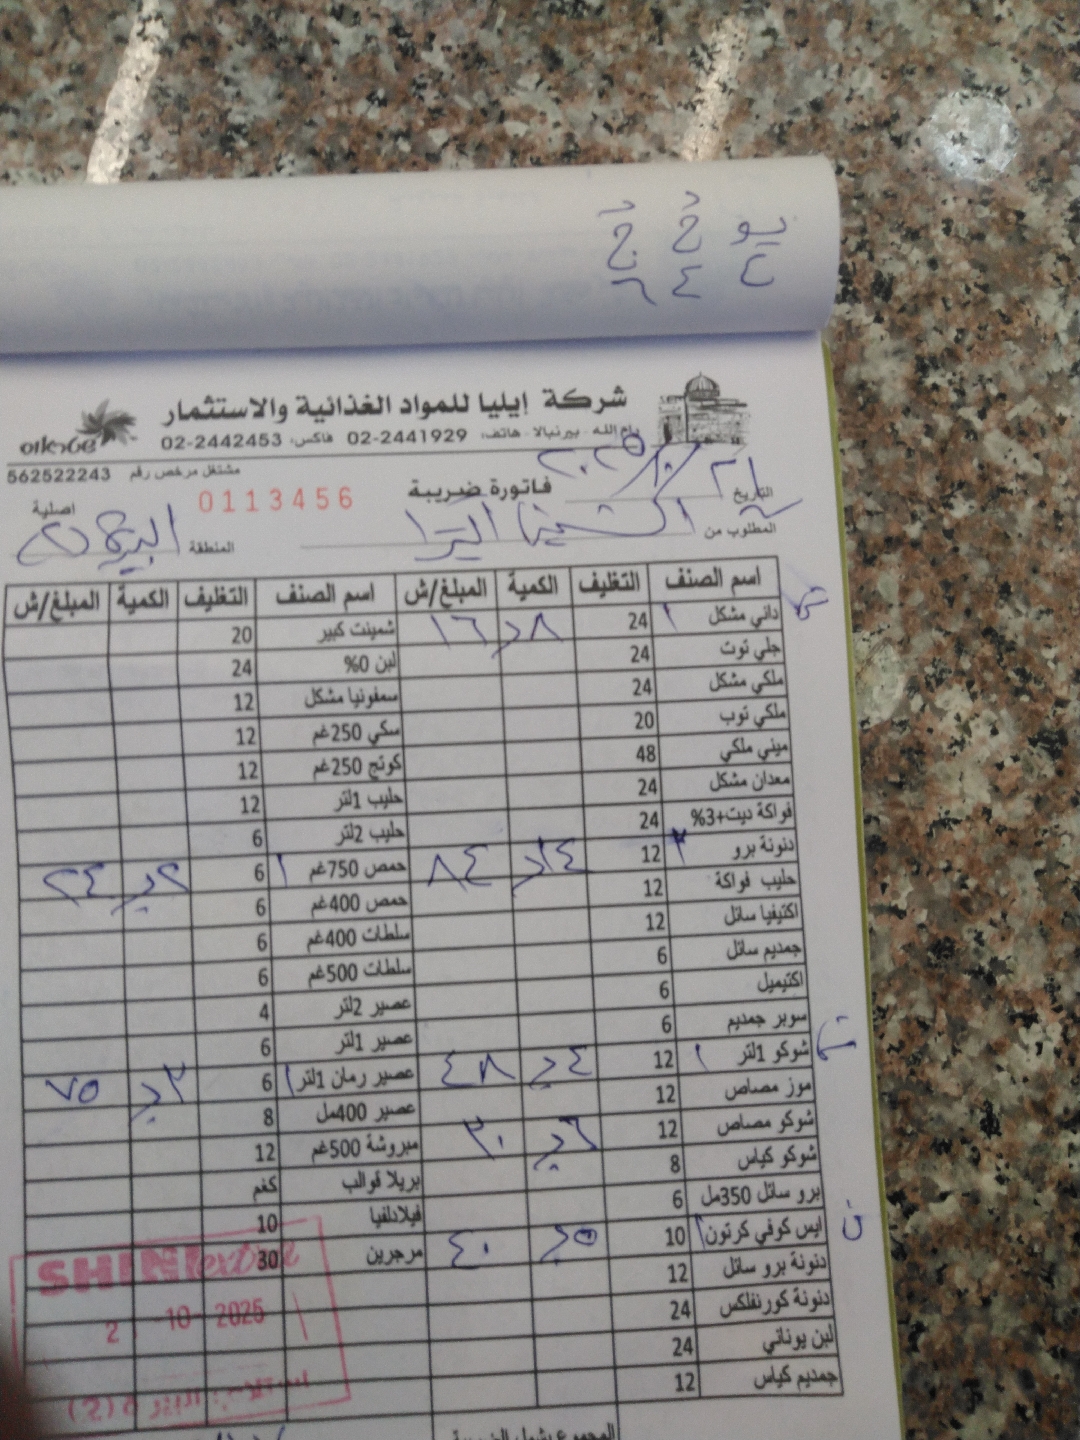 يو جُ جُ
٤ ٤ ٦
شركة إيليا للمواد الغذائية والاستثمار
رام الله - بيرنبالا - هاتف: 02-2441929 فاكس: 02-2442453
مشتغل مرخص رقم 562522243
التاريخ ٢١/١٠/٢٠٢٥ فاتورة ضريبة 0113456 اصلية
المطلوب من المنطقة
اسم الصنف التغليف الكمية المبلغ/ش اسم الصنف التغليف الكمية المبلغ/ش
داني مشكل ١ 24 ٨ د ١٦ شمينت كبير 20
جلي توت 24 لبن 0% 24
ملكي مشكل 24 سمفونيا مشكل 12
ملكي توب 20 سكي 250غم 12
ميني ملكي 48 كوتج 250غم 12
معدان مشكل 24 حليب 1لتر 12
فواكة ديت+3% 24 حليب 2لتر 6
دنونة برو ٢ 12 ١٤ د ٨٤ حمص 750غم ١ 6 ٢ د ٢٤
حليب فواكة 12 حمص 400غم 6
اكتيفيا سائل 12 سلطات 400غم 6
جمديم سائل 6 سلطات 500غم 6
اكتيميل 6 عصير 2لتر 4
سوبر جمديم 6 عصير 1لتر 6
شوكو 1لتر ١ 12 ٤ د ٤٨ عصير رمان 1لتر ١ 6 ٣ د ٧٥
موز مصاص 12 عصير 400مل 8
شوكو مصاص 12 ٦ د ٣٠ مبروشة 500غم 12
شوكو كياس 8 بريلا قوالب كغم
برو سائل 350مل 6 فيلادلفيا 10
ايس كوفي كرتون ١ 10 ٥ د ٤٠ مرجرين 30
دنونة برو سائل 12
دنونة كورنفلكس 24
لبن يوناني 24
جمديم كياس 12
SHINI extra
2 -10- 2025
المجموع يشمل الضريبة